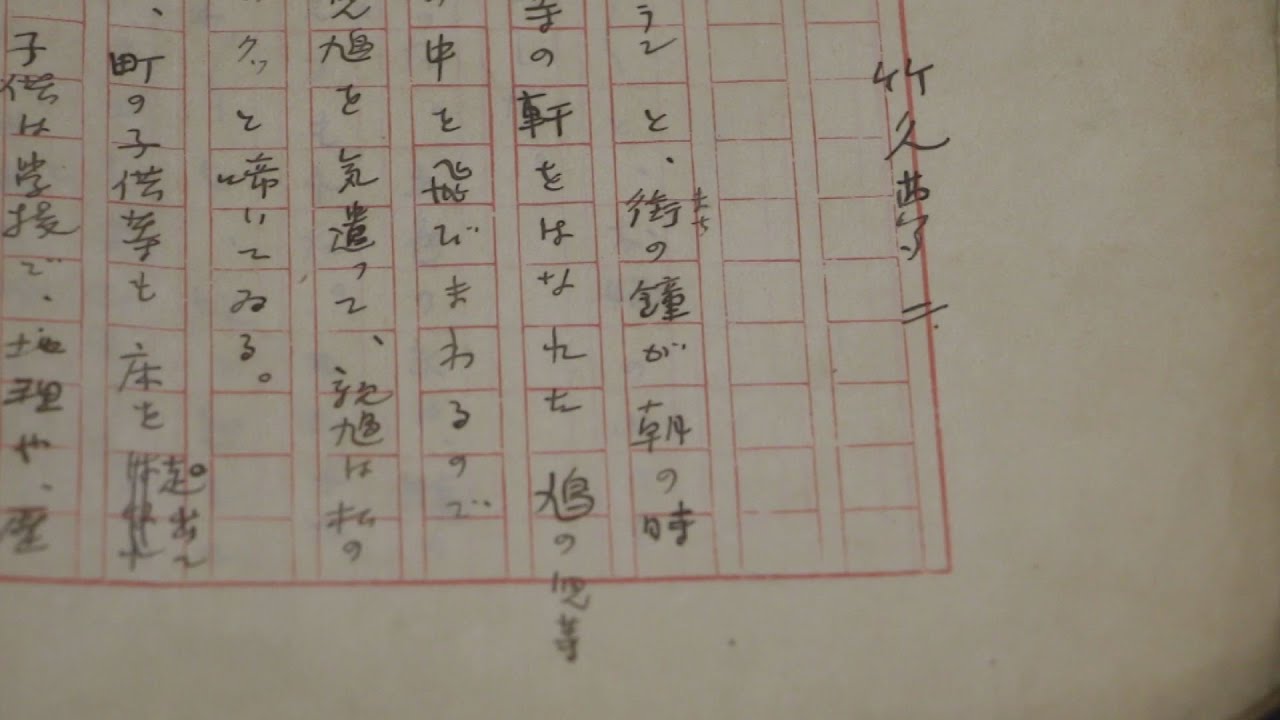 竹久夢二
ランと、街の鐘が朝の時
まち
寺の軒をはなれた鳩の児等
中を飛びまわるので
鳩を気遣って、親鳩は松の
クッと啼いてゐる。
、町の子供等も床を
起出て
子供は学校で、地理や、歴